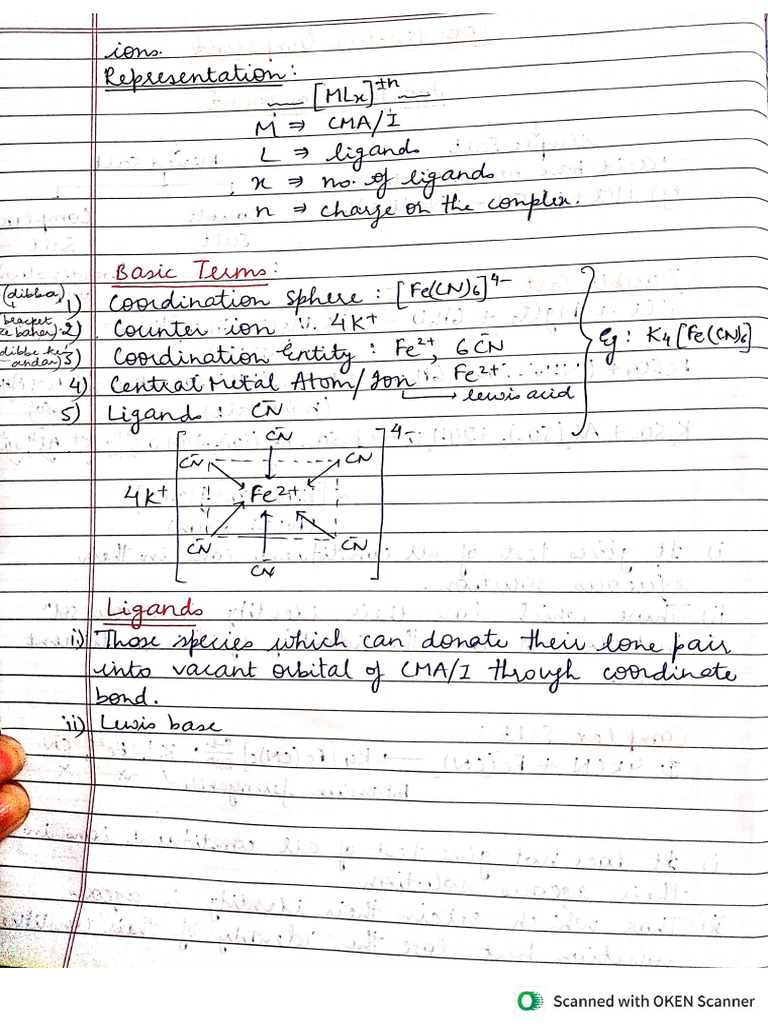 ions.
Representation:
[MLx]±n
M ⇒ CMA/I
L ⇒ ligands
x ⇒ no. of ligands
n ⇒ charge on the complex.
Basic Terms:
(dibba) 1) Coordination sphere : [Fe(CN)6]4-
bracket ke bahar 2) Counter ion : 4K+
dibbe ke andar 3) Coordination Entity : Fe2+, 6C̄N
4) Central Metal Atom/Ion : Fe2+
→ lewis acid
5) Ligands : C̄N
Eg: K4[Fe(CN)6]
C̄N 4-
C̄N CN
4K+ Fe2+
C̄N C̄N
CN
Ligands
i) Those species which can donate their lone pair
into vacant orbital of CMA/I through coordinate
bond.
ii) Lewis base
Scanned with OKEN Scanner